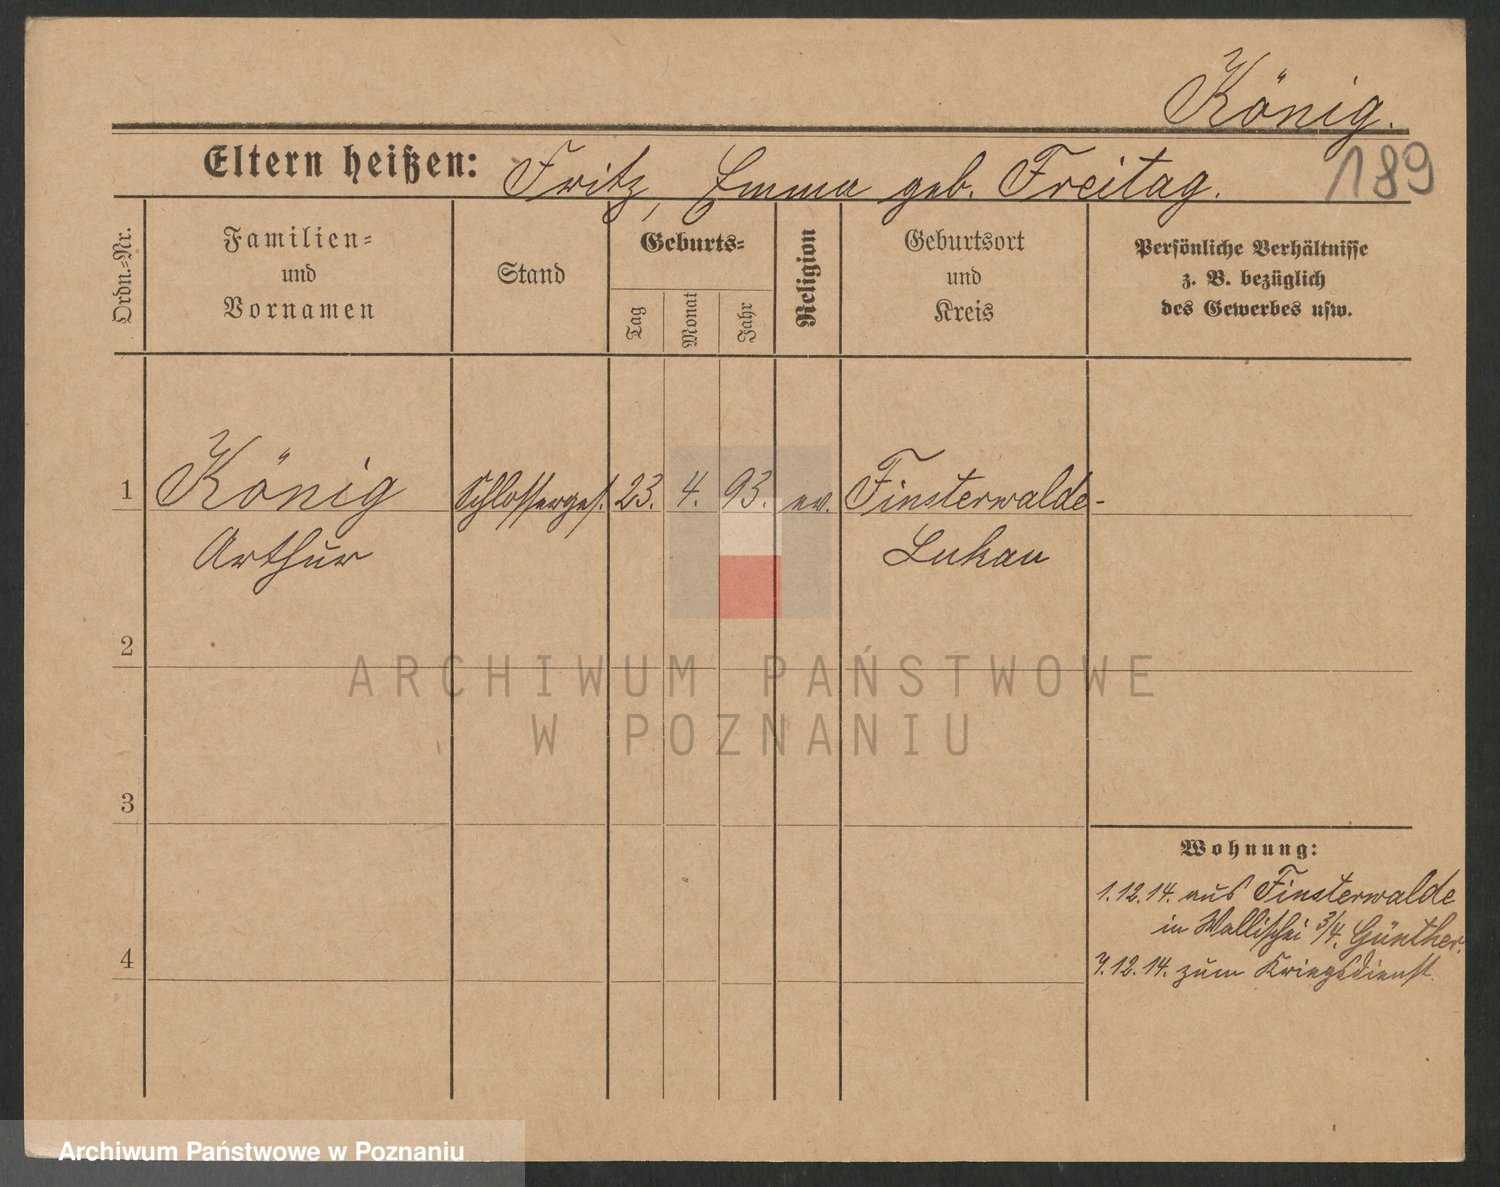 König.
189
Eltern heißen: Fritz, Emma geb. Freitag.
Ordn.-Nr.
Familien-
und
Vornamen
Stand
Geburts-
Tag
Monat
Jahr
Religion
Geburtsort
und
Kreis
Persönliche Verhältnisse
z. B. bezüglich
des Gewerbes usw.
1 König Schlosserges. 23. 4. 93. ev. Finsterwalde-
Arthur Lukau
2
ARCHIWUM PAŃSTWOWE
W POZNANIU
3
Wohnung:
1.12.14. aus Finsterwalde
in Wallischei 3/4. Günther.
4
7.12.14. zum Kriegsdienst.
Archiwum Państwowe w Poznaniu